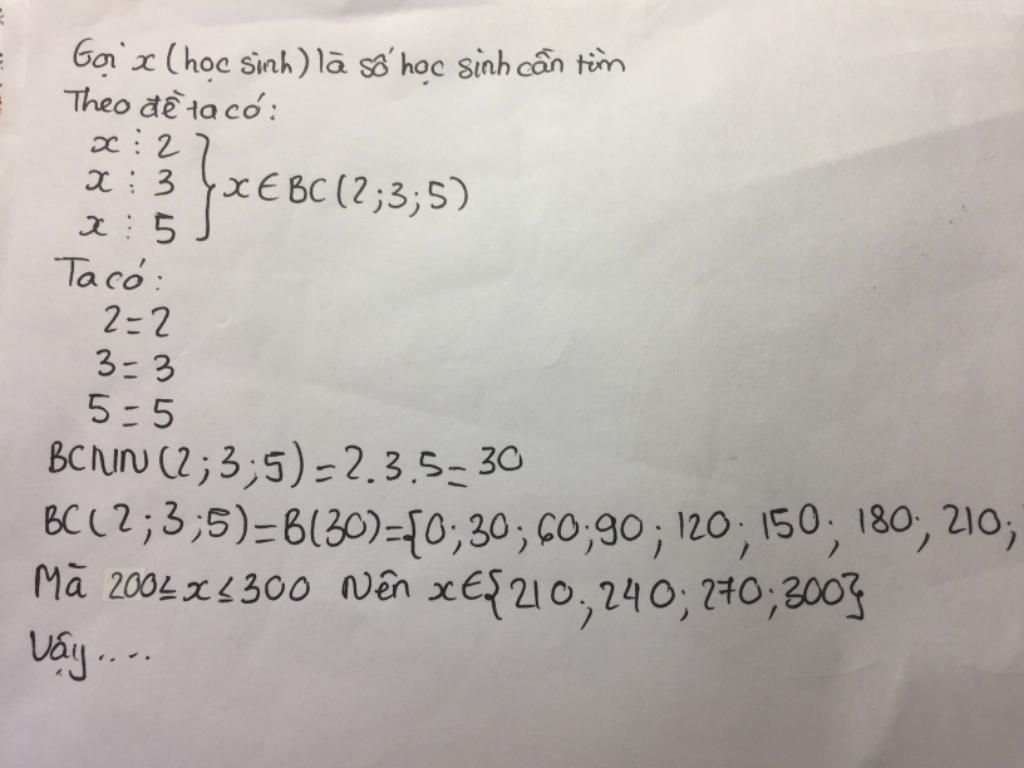 Gọi x (học sinh) là số học sinh cần tìm
Theo đề ta có:
x ⋮ 2
x ⋮ 3 } x ∈ BC(2;3;5)
x ⋮ 5
Ta có:
2 = 2
3 = 3
5 = 5
BCNN(2;3;5) = 2.3.5 = 30
BC(2;3;5) = B(30) = {0; 30; 60; 90; 120; 150; 180; 210;
Mà 200 ≤ x ≤ 300 Nên x ∈ {210; 240; 270; 300}
Vậy....